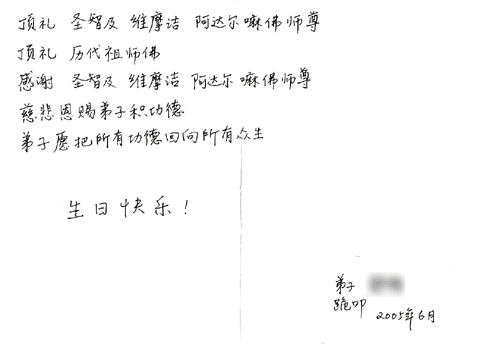 顶礼 圣智及 维摩洁 阿达尔嘛佛师尊
顶礼 历代祖师佛
感谢 圣智及 维摩洁 阿达尔嘛佛师尊
慈悲恩赐弟子积功德
弟子愿把所有功德回向所有众生
生日快乐！
弟子
跪叩
2005年6月